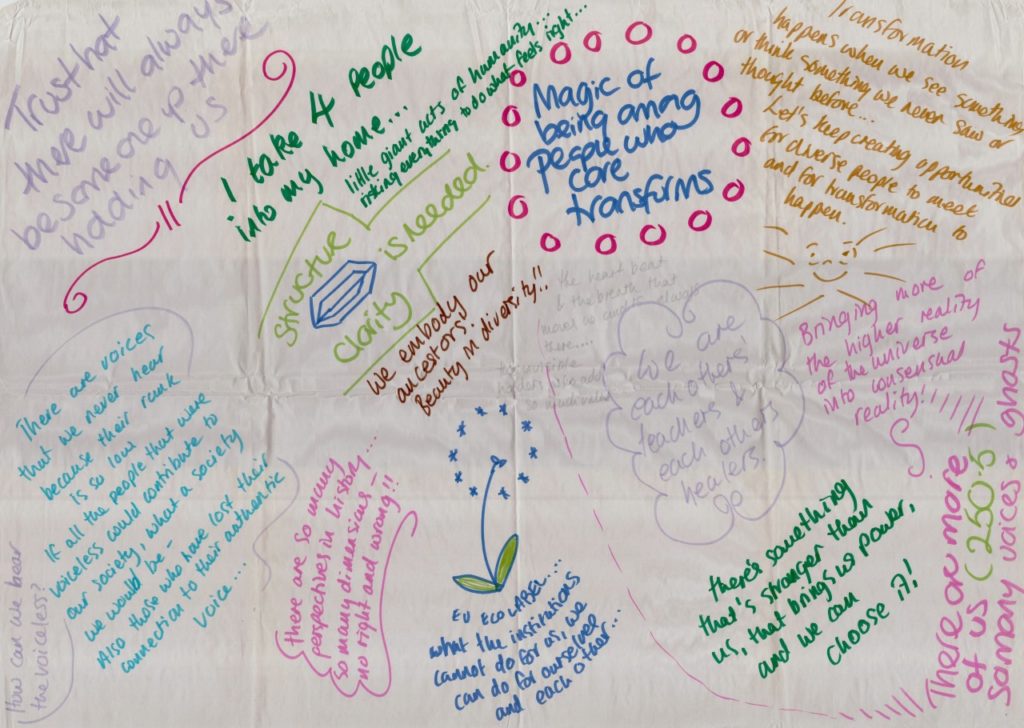 Trust that
there will always
be someone up there
holding
us
I take 4 people
into my home...
little giant acts of humanity...
risking everything to do what feels right...
Magic of
being among
people who
care
transforms
Transformation
happens when we see something
or think something we never saw or
thought before...
Let's keep creating opportunities
for diverse people to meet
and for transformation to
happen.
Structure
is needed
Clarity
We embody our
ancestors!
Beauty in diversity!!
the heart beat
& the breath that
moves us
always
there....
the invisible
so much
We are
each others'
teachers &
each others
healers.
Bringing more of
the higher reality
of the universe
into consensual
reality!
There are voices
that we never hear
because their rank
is so low
If all the people that were
voiceless could contribute to
our society, what a society
we would be -
Also those who have lost their
connection to their authentic
voice...
How can we hear
the voiceless?
there are so many
perspectives in history...
so many dimensions -
no right and wrong!!
EU ECO LABEL...
what the institutions
cannot do for us, we
can do for ourselves
and each other...
there's something
that's stranger than
us, that brings us power,
and we can
choose it!
There are more
of us (250.5)
so many voices & ghosts